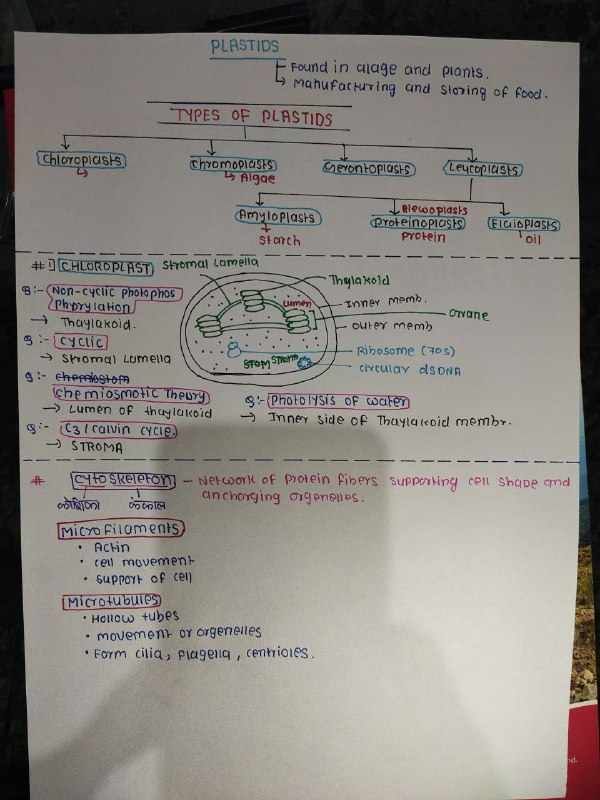 PLASTIDS
Found in alage and plants.
Manufacturing and storing of food.
TYPES OF PLASTIDS
Chloroplasts
Chromoplasts
Gerontoplasts
Leucoplasts
Algae
Alewoplasts
Amyloplasts
Proteinoplasts
Elaioplasts
Starch
Protein
oil
# 1] CHLOROPLAST
Stromal Lamella
Q:- Non-cyclic photophos
Phpyrylation
→ Thaylakoid.
Q:- cyclic
→ Stromal Lamella
Q:- chemiostom
chemiosmotic Theory
→ Lumen of thaylakoid
Q:- C3/calvin cycle.
→ STROMA
Thylakoid
Lumen
Inner memb.
Grane
outer memb
Ribosome (70s)
STOM STROMA
circular dsDNA
Q:- Photolysis of water
→ Inner side of Thaylakoid membr.
# cytoskeleton - Network of Protein fibers supporting cell shape and
anchorging organelles.
कोशिका कंकाल
Microfilaments
• Actin
• cell movement
• support of cell
Microtubules
• Hollow tubes
• movement or organelles
• Form cilia, flagella, centrioles.
nd.